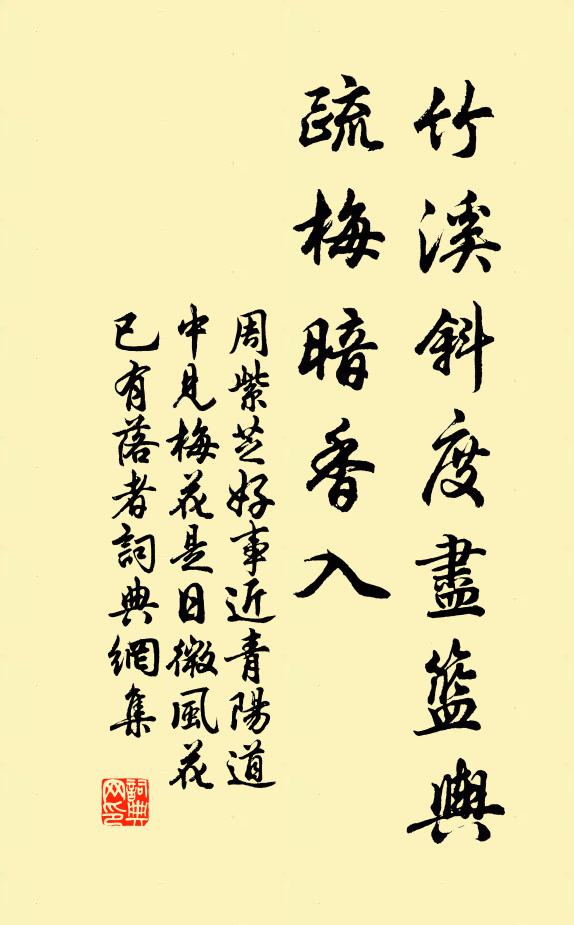 竹溪斜度盡籃輿
疏梅暗香入
周紫芝好事近青陽道
中見梅花是日微風花
已有落者詞典網集
詞典網印